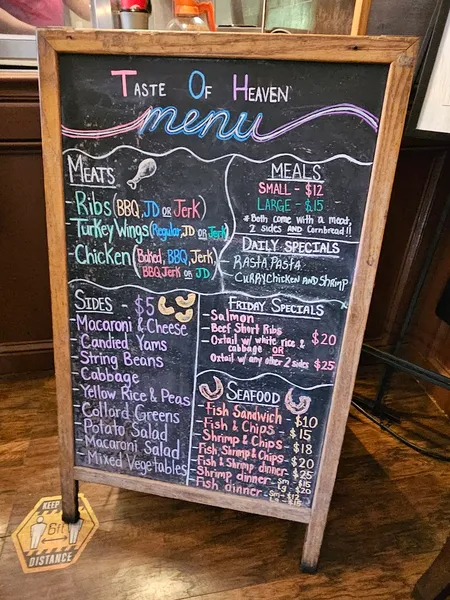 Taste Of Heaven
menu
Meats
- Ribs (BBQ, JD or Jerk)
- Turkey Wings (Regular, JD or Jerk)
- Chicken (Baked, BBQ, Jerk,
BBQ Jerk or JD)
MEALS
SMALL - $12
LARGE - $15
* Both come with a meat,
2 sides AND Cornbread!!
Daily Specials
RASTA PASTA
CURRY Chicken AND Shrimp
Sides - $5
- Macaroni & Cheese
- Candied Yams
- String Beans
- Cabbage
- Yellow Rice & Peas
- Collard Greens
- Potato Salad
- Macaroni Salad
- Mixed Vegetables
Friday Specials
- Salmon
- Beef Short Ribs
- Oxtail w/ white rice & cabbage $20
OR
Oxtail w/ any other 2 sides $25
Seafood
- Fish Sandwich - $10
- Fish & Chips - $15
- Shrimp & Chips - $18
- Fish, Shrimp & Chips - $20
- Fish & Shrimp dinner - $25
- Shrimp dinner - sm - $15
lg - $20
- Fish dinner - sm - $12
lg - $15
KEEP
6ft
DISTANCE